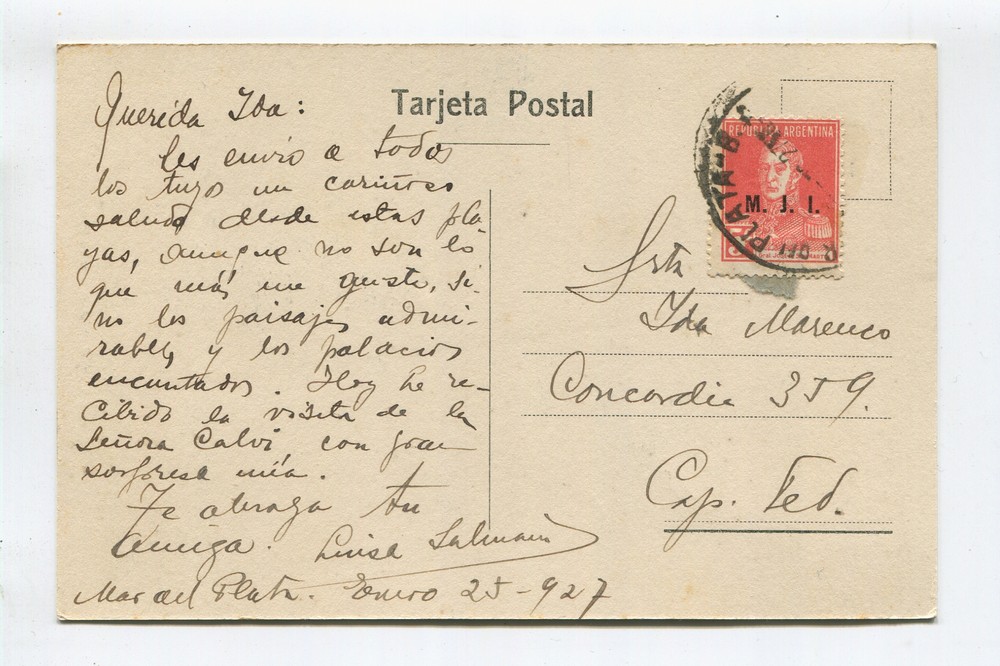 Tarjeta Postal
Querida Ida:
Les envío a todos
los tuyos un cariñoso
saludo desde estas pla-
yas, aunque no son lo
que más me gusta, si-
no los paisajes admi-
rables y los palacios
encantados. Hoy he re-
cibido la visita de la
Señora Calvi con gran
sorpresa mía.
Te abraza tu
amiga. Luisa
Mar del Plata. Enero 25-927
REPUBLICA ARGENTINA
M. J. I.
PLATA
Srta
Ida Marenco
Concordia 359.
Cap. Fed.